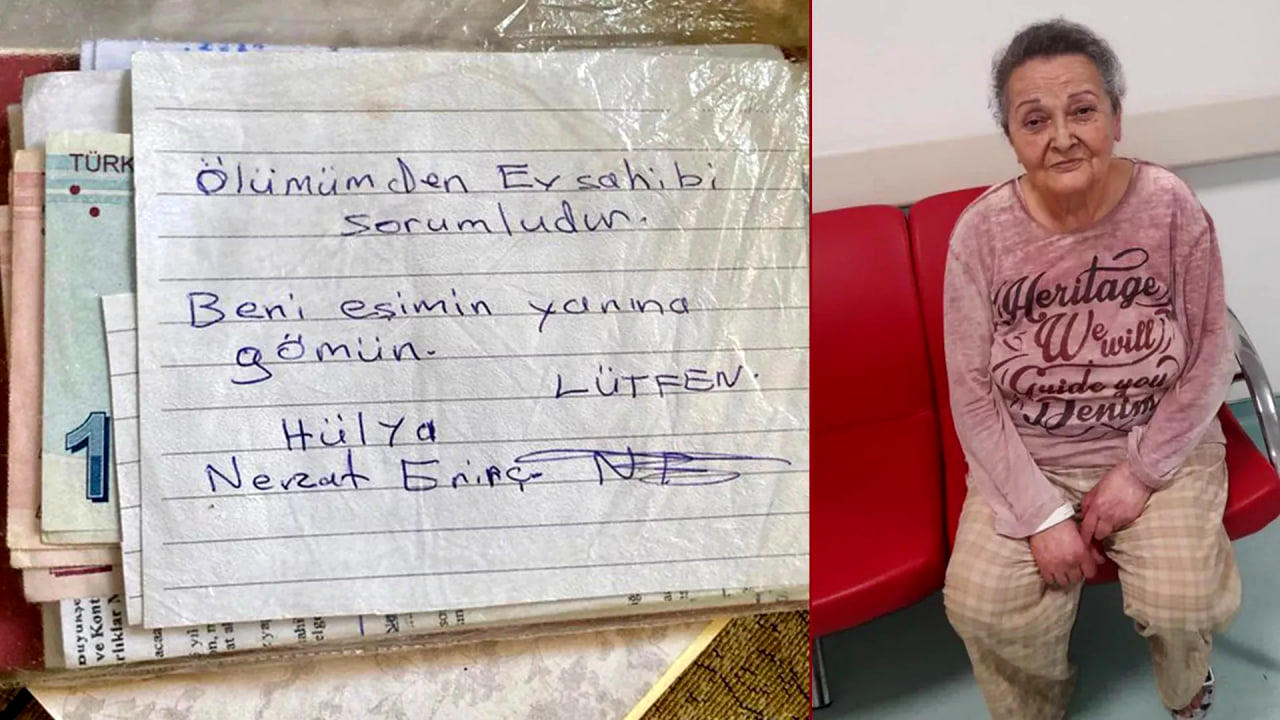 TÜRK
1
Ölümümden Ev sahibi
sorumludur.
Beni eşimin yanına
gömün.
LÜTFEN.
Hülya
Nevzat Erinç
NE
ve Kont
Heritage
We will
Guide you
Denim